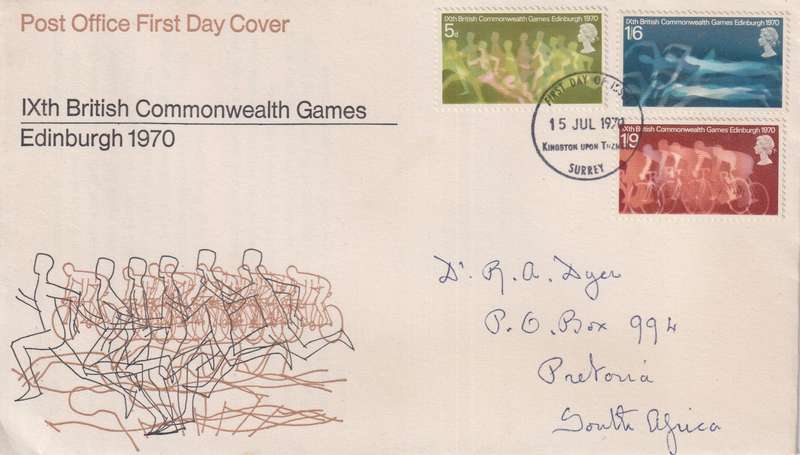 Post Office First Day Cover
IXth British Commonwealth Games
Edinburgh 1970
IXth British Commonwealth Games Edinburgh 1970
5d
IXth British Commonwealth Games Edinburgh 1970
1/6
IXth British Commonwealth Games Edinburgh 1970
1/9
FIRST DAY OF ISSUE
15 JUL 1970
KINGSTON UPON THAMES
SURREY
Dr. R. A. Dyer
P. O. Box 994
Pretoria
South Africa